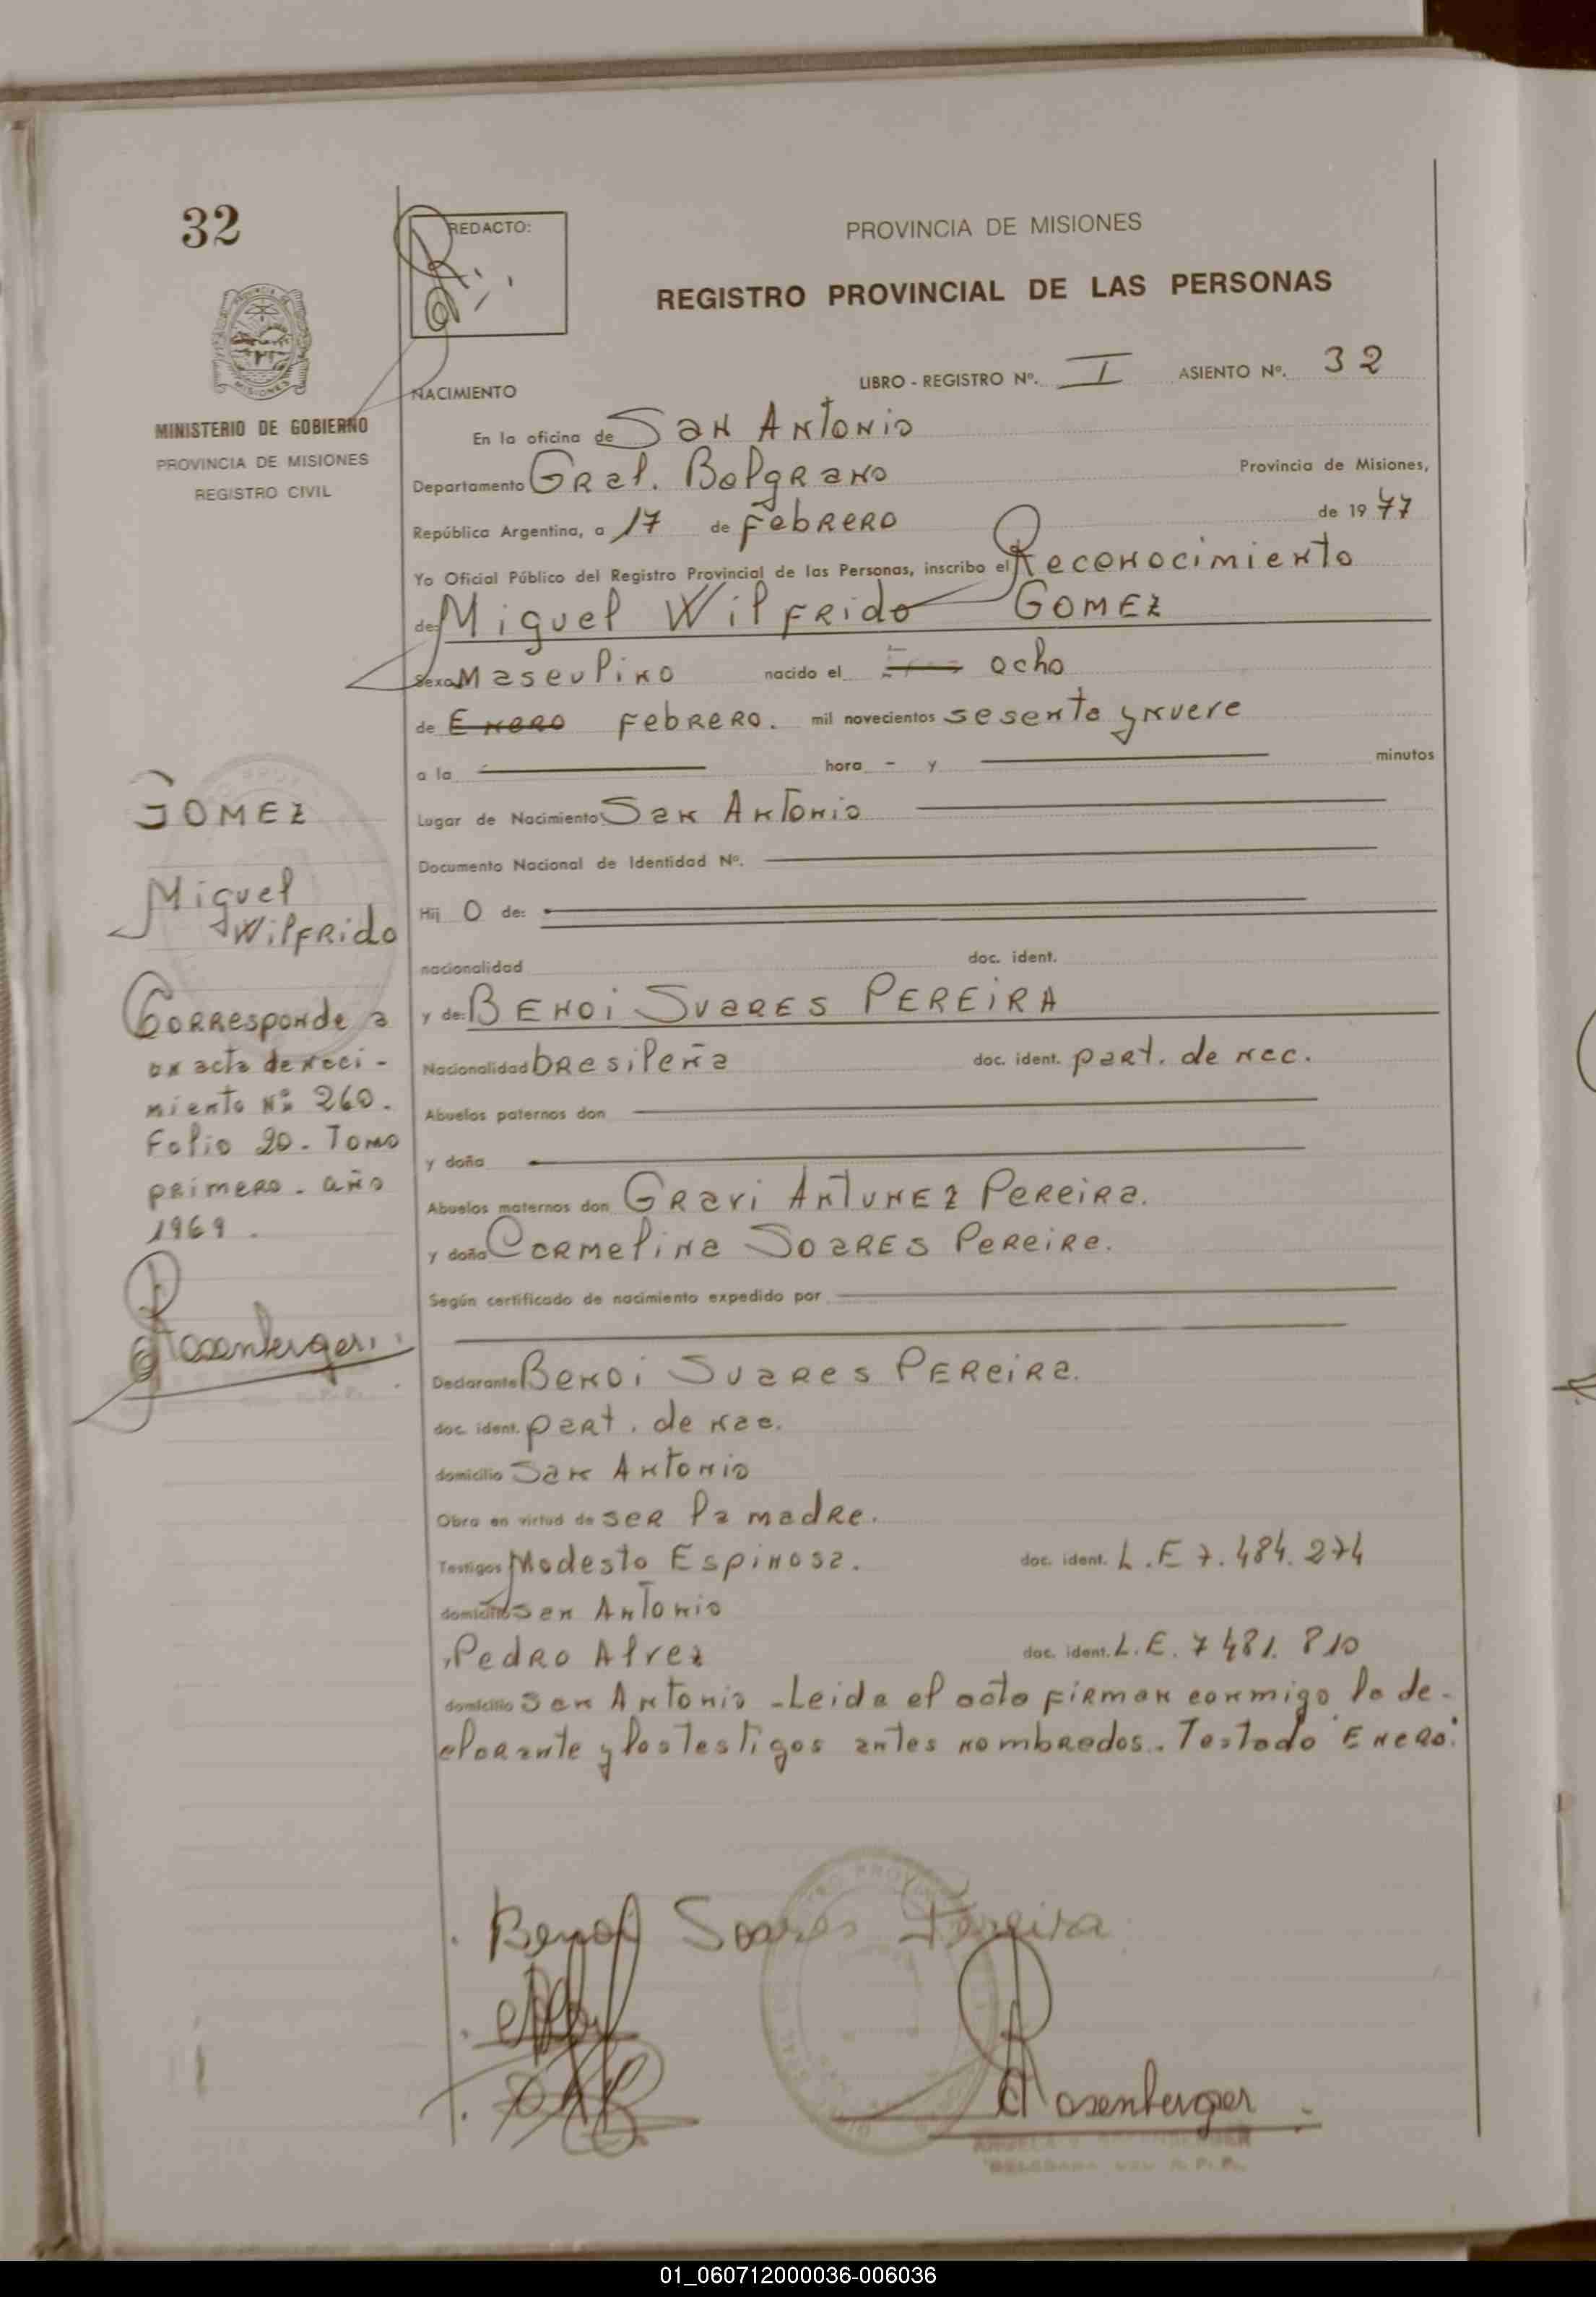 32
REDACTO:
PROVINCIA DE MISIONES
REGISTRO PROVINCIAL DE LAS PERSONAS
MINISTERIO DE GOBIERNO
PROVINCIA DE MISIONES
REGISTRO CIVIL
NACIMIENTO
LIBRO - REGISTRO Nº. I ASIENTO Nº. 32
En la oficina de San Antonio
Departamento Gral. Belgrano Provincia de Misiones,
República Argentina, a 17 de Febrero de 1977
Yo Oficial Público del Registro Provincial de las Personas, inscribo el Reconocimiento
de: Miguel Wilfrido GOMEZ
Sexo Masculino nacido el ocho
de Enero Febrero. mil novecientos sesenta y nueve
a la hora - y minutos
Lugar de Nacimiento San Antonio
Documento Nacional de Identidad Nº.
Hij O de:
nacionalidad doc. ident.
y de: BENOI SUARES PEREIRA
Nacionalidad brasileña doc. ident. part. de nac.
Abuelos paternos don
y doña
Abuelos maternos don Gravi ANTUNEZ Pereira.
y doña Carmelina SOARES Pereira.
Según certificado de nacimiento expedido por
Declarante Benoi Suares PEREIRA.
doc. ident. part. de nac.
domicilio San Antonio
Obra en virtud de ser la madre.
Testigos Modesto Espinosa. doc. ident. L.E 7.484.274
domicilio San Antonio
Pedro Alvez doc. ident. L.E. 7 481. 810
domicilio San Antonio - Leida el acta firman conmigo la de-
clarante y los testigos antes nombrados. Testado "Enero".
GOMEZ
Miguel
Wilfrido
Corresponde a
un acta de naci-
miento Nº 260.
Folio 20. Tomo
primero. año
1969.
Rosenberger
Benoi Soares Pereira
Rosenberger
01_060712000036-006036